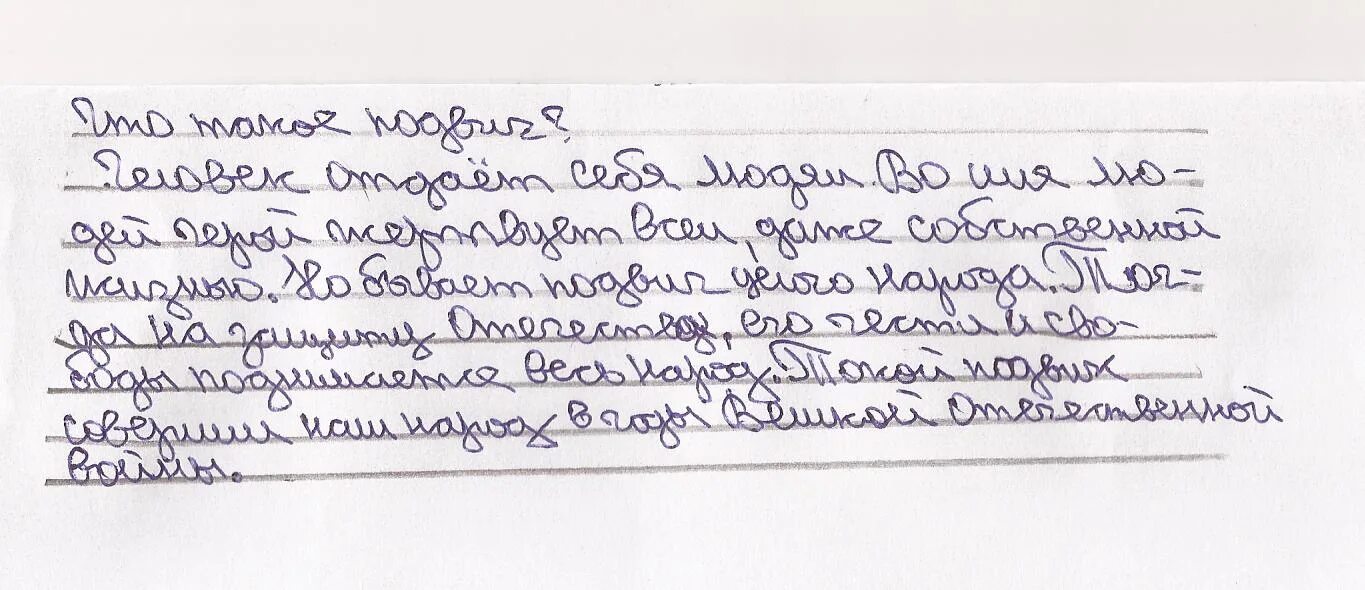 Что такое подвиг?
Человек отдаёт себя людям. Во имя лю-
дей герой жертвует всем, даже собственной
жизнью. Но бывает подвиг целого народа. Тог-
да на защиту Отечества, его чести и сво-
боды поднимается весь народ. Такой подвик
совершил наш народ в годы Великой Отечественной
войны.